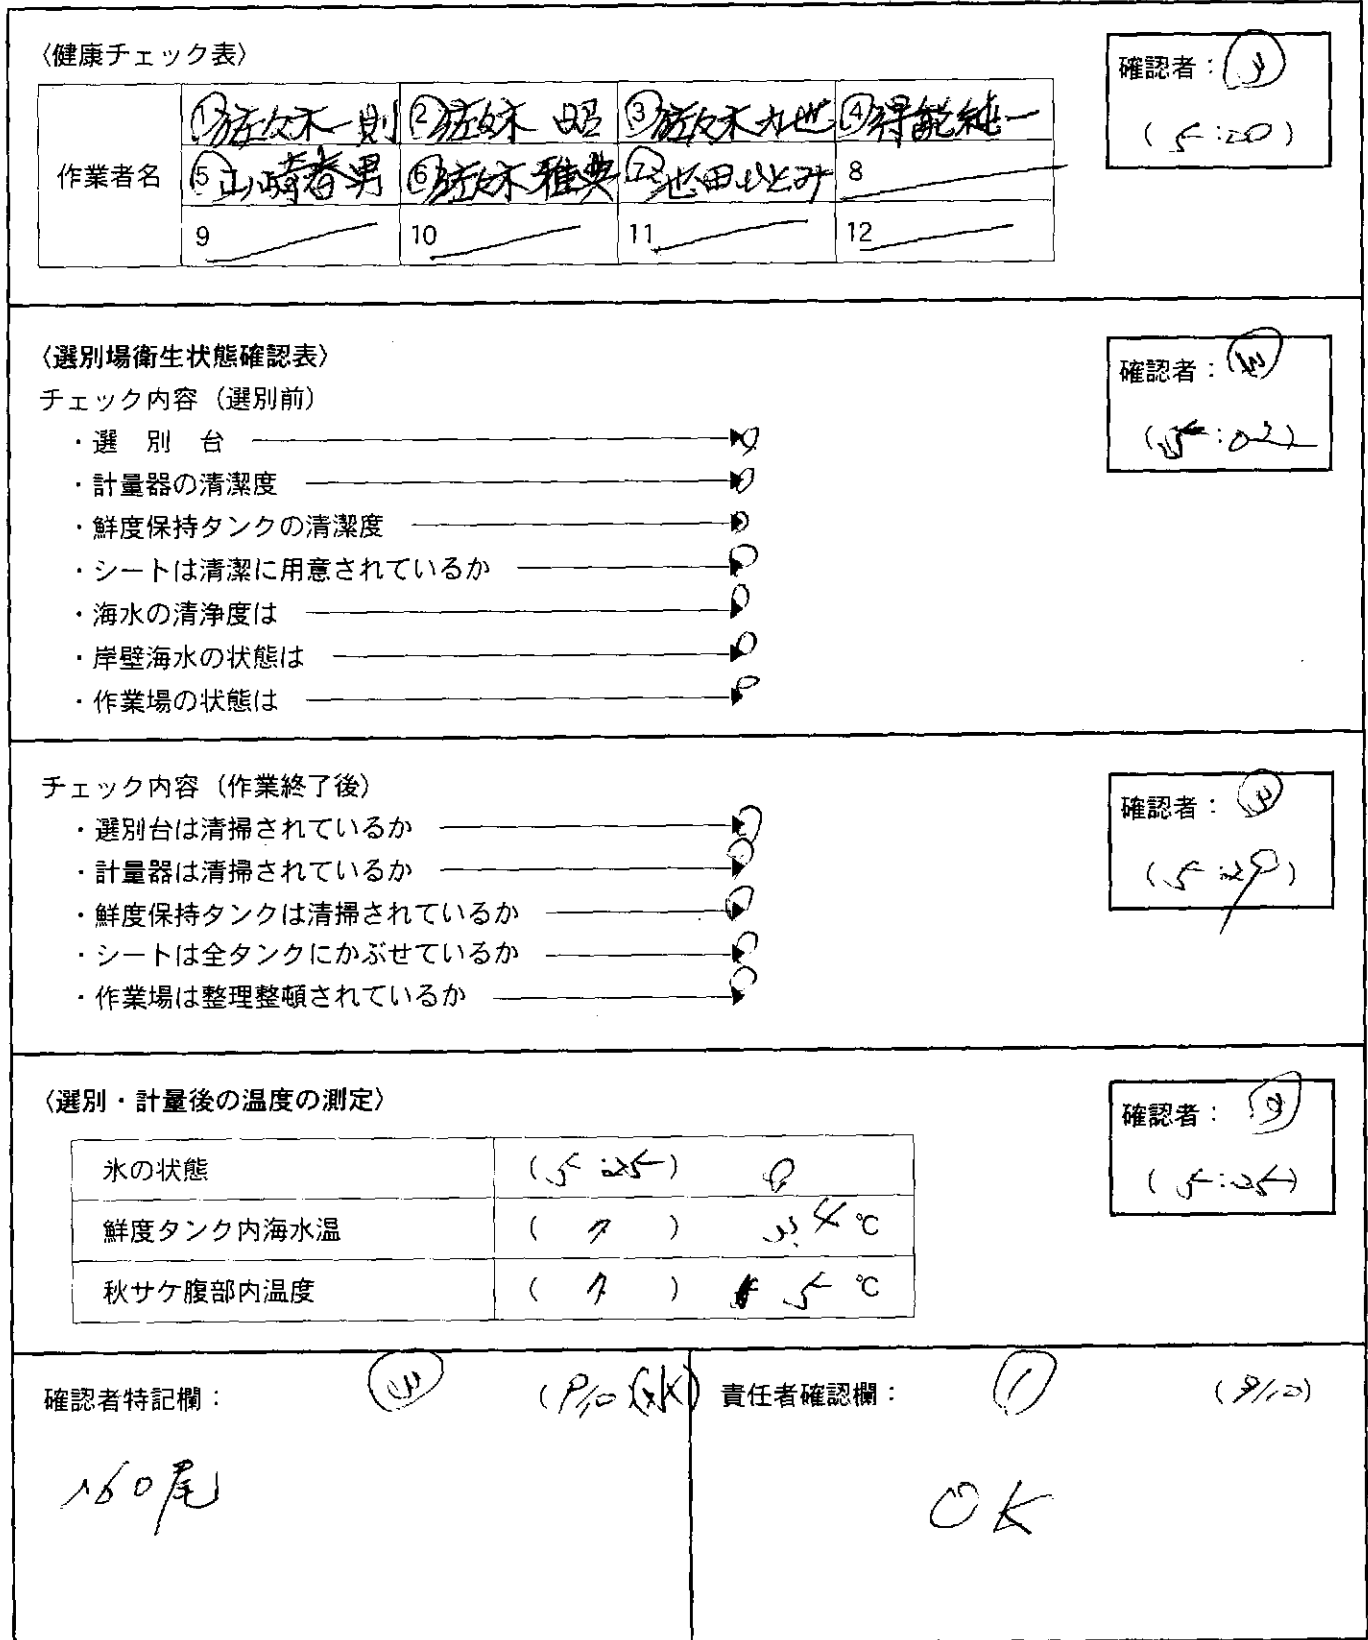 〈健康チェック表〉
確認者：
(5:20)
作業者名
①佐々木一則 ②佐々木 昭 ③佐々木九也 ④得能純一
⑤山崎春男 ⑥佐々木雅典 ⑦池田ひとみ 8
9 10 11 12
〈選別場衛生状態確認表〉
確認者：
(5:02)
チェック内容（選別前）
・選 別 台
・計量器の清潔度
・鮮度保持タンクの清潔度
・シートは清潔に用意されているか
・海水の清浄度は
・岸壁海水の状態は
・作業場の状態は
チェック内容（作業終了後）
確認者：
・選別台は清掃されているか
・計量器は清掃されているか
・鮮度保持タンクは清掃されているか
・シートは全タンクにかぶせているか
・作業場は整理整頓されているか
〈選別・計量後の温度の測定〉
確認者：
(5:25)
氷の状態 (5:25)
鮮度タンク内海水温 ( 〃 ) ℃
秋サケ腹部内温度 ( 〃 ) 5 ℃
確認者特記欄：
160尾
責任者確認欄： (9/10)
OK